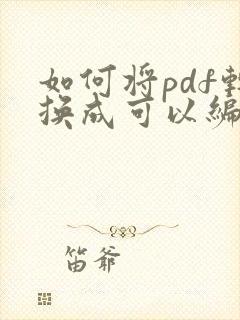 如何将pdf转
换成可以编
笛爷